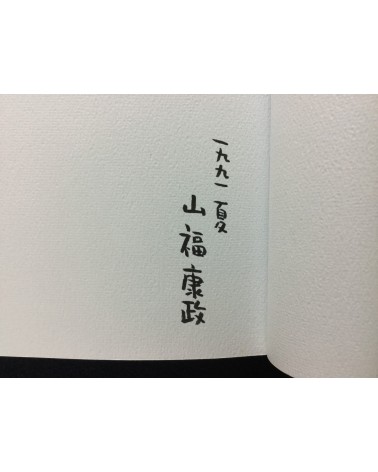 一九九一夏
山福康政